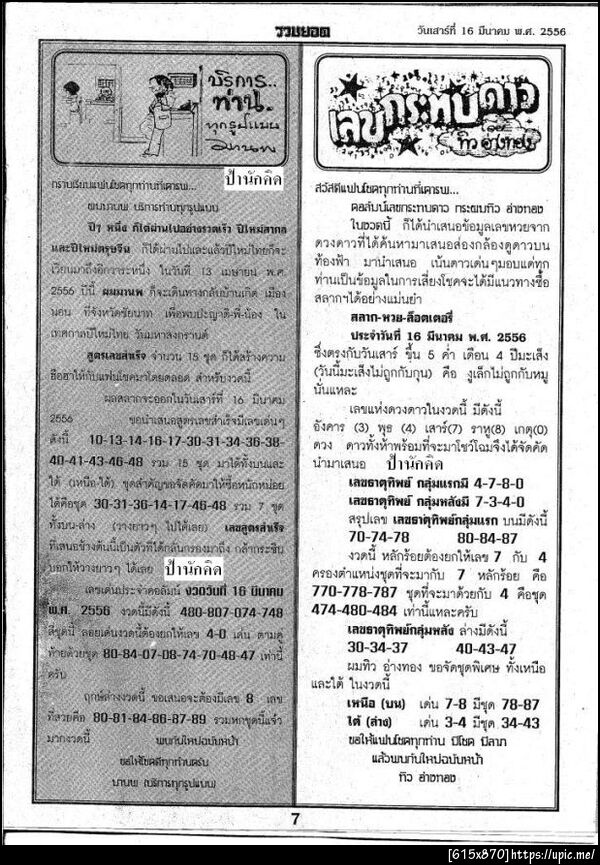 รวยยอด
วันเสาร์ที่ 16 มีนาคม พ.ศ. 2556
บริการ..
ท่าน.
ทุกรูปแบบ
มานพ
ป้านักคิด
กราบเรียนแฟนโชคทุกท่านที่เคารพ...
ผมมานพ บริการท่านทุกรูปแบบ
ปีๆ หนึ่ง ก็ได้ผ่านไปอย่างรวดเร็ว ปีใหม่สากล
และปีใหม่ตรุษจีน ก็ได้ผ่านไปและแล้วปีใหม่ไทยก็จะ
เวียนมาถึงอีกวาระหนึ่ง ในวันที่ 13 เมษายน พ.ศ.
2556 ปีนี้ ผมมานพ ก็จะเดินทางกลับบ้านเกิด เมือง
นอน ที่จังหวัดชัยนาท เพื่อพบปะญาติ-พี่-น้อง ใน
เทศกาลปีใหม่ไทย วันมหาสงกรานต์
สูตรเลขสำเร็จ จำนวน 15 ชุด ก็ได้สร้างความ
ฮือฮาให้กับแฟนโชคมาโดยตลอด สำหรับงวดนี้
ผลสลากจะออกในวันเสาร์ที่ 16 มีนาคม
2556 ขอนำเสนอสูตรเลขสำเร็จมีเลขเด่นๆ
ดังนี้ 10-13-14-16-17-30-31-34-36-38-
40-41-43-46-48 รวม 15 ชุด มาได้ทั้งบนและ
ใต้ (เหนือ-ใต้) ชุดสำคัญขอจัดคัดมาให้ซื้อหนักหน่อย
ได้คือชุด 30-31-36-14-17-46-48 รวม 7 ชุด
ทั้งบน-ล่าง (วางยาวๆ ไปได้เลย) เลขสูตรสำเร็จ
ที่เสนอข้างต้นนี้เป็นตัวที่ได้กลั่นกรองมาถึง กล้ากระซิบ
บอกให้วางยาวๆ ได้เลย ป้านักคิด
เลขเด่นประจำคอลัมน์ งวดวันที่ 16 มีนาคม
พ.ศ. 2556 งวดนี้มีดังนี้ 480-807-074-748
สี่ชุดนี้ ลอยเด่นงวดนี้ต้องยกให้เลข 4-0 เด่น ตามคู่
ท้ายด้วยชุด 80-84-07-08-74-70-48-47 เท่านี้
ครับ
ฤกษ์ล่างงวดนี้ ขอเสนอจะต้องมีเลข 8 เลข
ที่สวยคือ 80-81-84-86-87-89 รวมหกชุดนี้แจ๋ว
มากงวดนี้ พบกันใหม่ฉบับหน้า
ขอให้โชคดีทุกท่านครับ
มานพ (บริการทุกรูปแบบ)
เลขกระทบดาว
โดย
ทิว อ่างทอง
สวัสดีแฟนโชคทุกท่านที่เคารพ...
คอลัมน์เลขกระทบดาว กระผมทิว อ่างทอง
ในงวดนี้ ก็ได้นำเสนอข้อมูลเลขหวยจาก
ดวงดาวที่ได้ค้นหามาเสนอส่องกล้องดูดาวบน
ท้องฟ้า มานำเสนอ เน้นดาวเด่นๆมอบแด่ทุก
ท่านเป็นข้อมูลในการเสี่ยงโชคจะได้มีแนวทางซื้อ
สลากฯได้อย่างแม่นยำ
สลาก-หวย-ล็อตเตอรี่
ประจำวันที่ 16 มีนาคม พ.ศ. 2556
ซึ่งตรงกับวันเสาร์ ขึ้น 5 ค่ำ เดือน 4 ปีมะเส็ง
(วันนี้มะเส็งไม่ถูกกับกุน) คือ งูเล็กไม่ถูกกับหมู
นั่นแหละ
เลขแห่งดวงดาวในงวดนี้ มีดังนี้
อังคาร (3) พุธ (4) เสาร์(7) ราหู(8) เกตุ(0)
ดวง ดาวทั้งห้าพร้อมที่จะมาโชว์โฉมจึงได้จัดคัด
นำมาเสนอ ป้านักคิด
เลขธาตุทิพย์ กลุ่มแรกมี 4-7-8-0
เลขธาตุทิพย์ กลุ่มหลังมี 7-3-4-0
สรุปเลข เลขธาตุทิพย์กลุ่มแรก บนมีดังนี้
70-74-78 80-84-87
งวดนี้ หลักร้อยต้องยกให้เลข 7 กับ 4
ครองตำแหน่งชุดที่จะมากับ 7 หลักร้อย คือ
770-778-787 ชุดที่จะมาด้วยกับ 4 คือชุด
474-480-484 เท่านี้แหละครับ
เลขธาตุทิพย์กลุ่มหลัง ล่างมีดังนี้
30-34-37 40-43-47
ผมทิว อ่างทอง ขอจัดชุดพิเศษ ทั้งเหนือ
และใต้ ในงวดนี้
เหนือ (บน) เด่น 7-8 มีชุด 78-87
ใต้ (ล่าง) เด่น 3-4 มีชุด 34-43
ขอให้แฟนโชคทุกท่าน มีโชค มีลาภ
แล้วพบกันใหม่ฉบับหน้า
ทิว อ่างทอง
7
[615x870]https://upic.me/